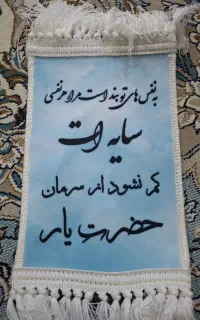 به نفس های تو بند است مرا هر نفسی
سایه ات
کم نشود از سرمان
حضرت یار